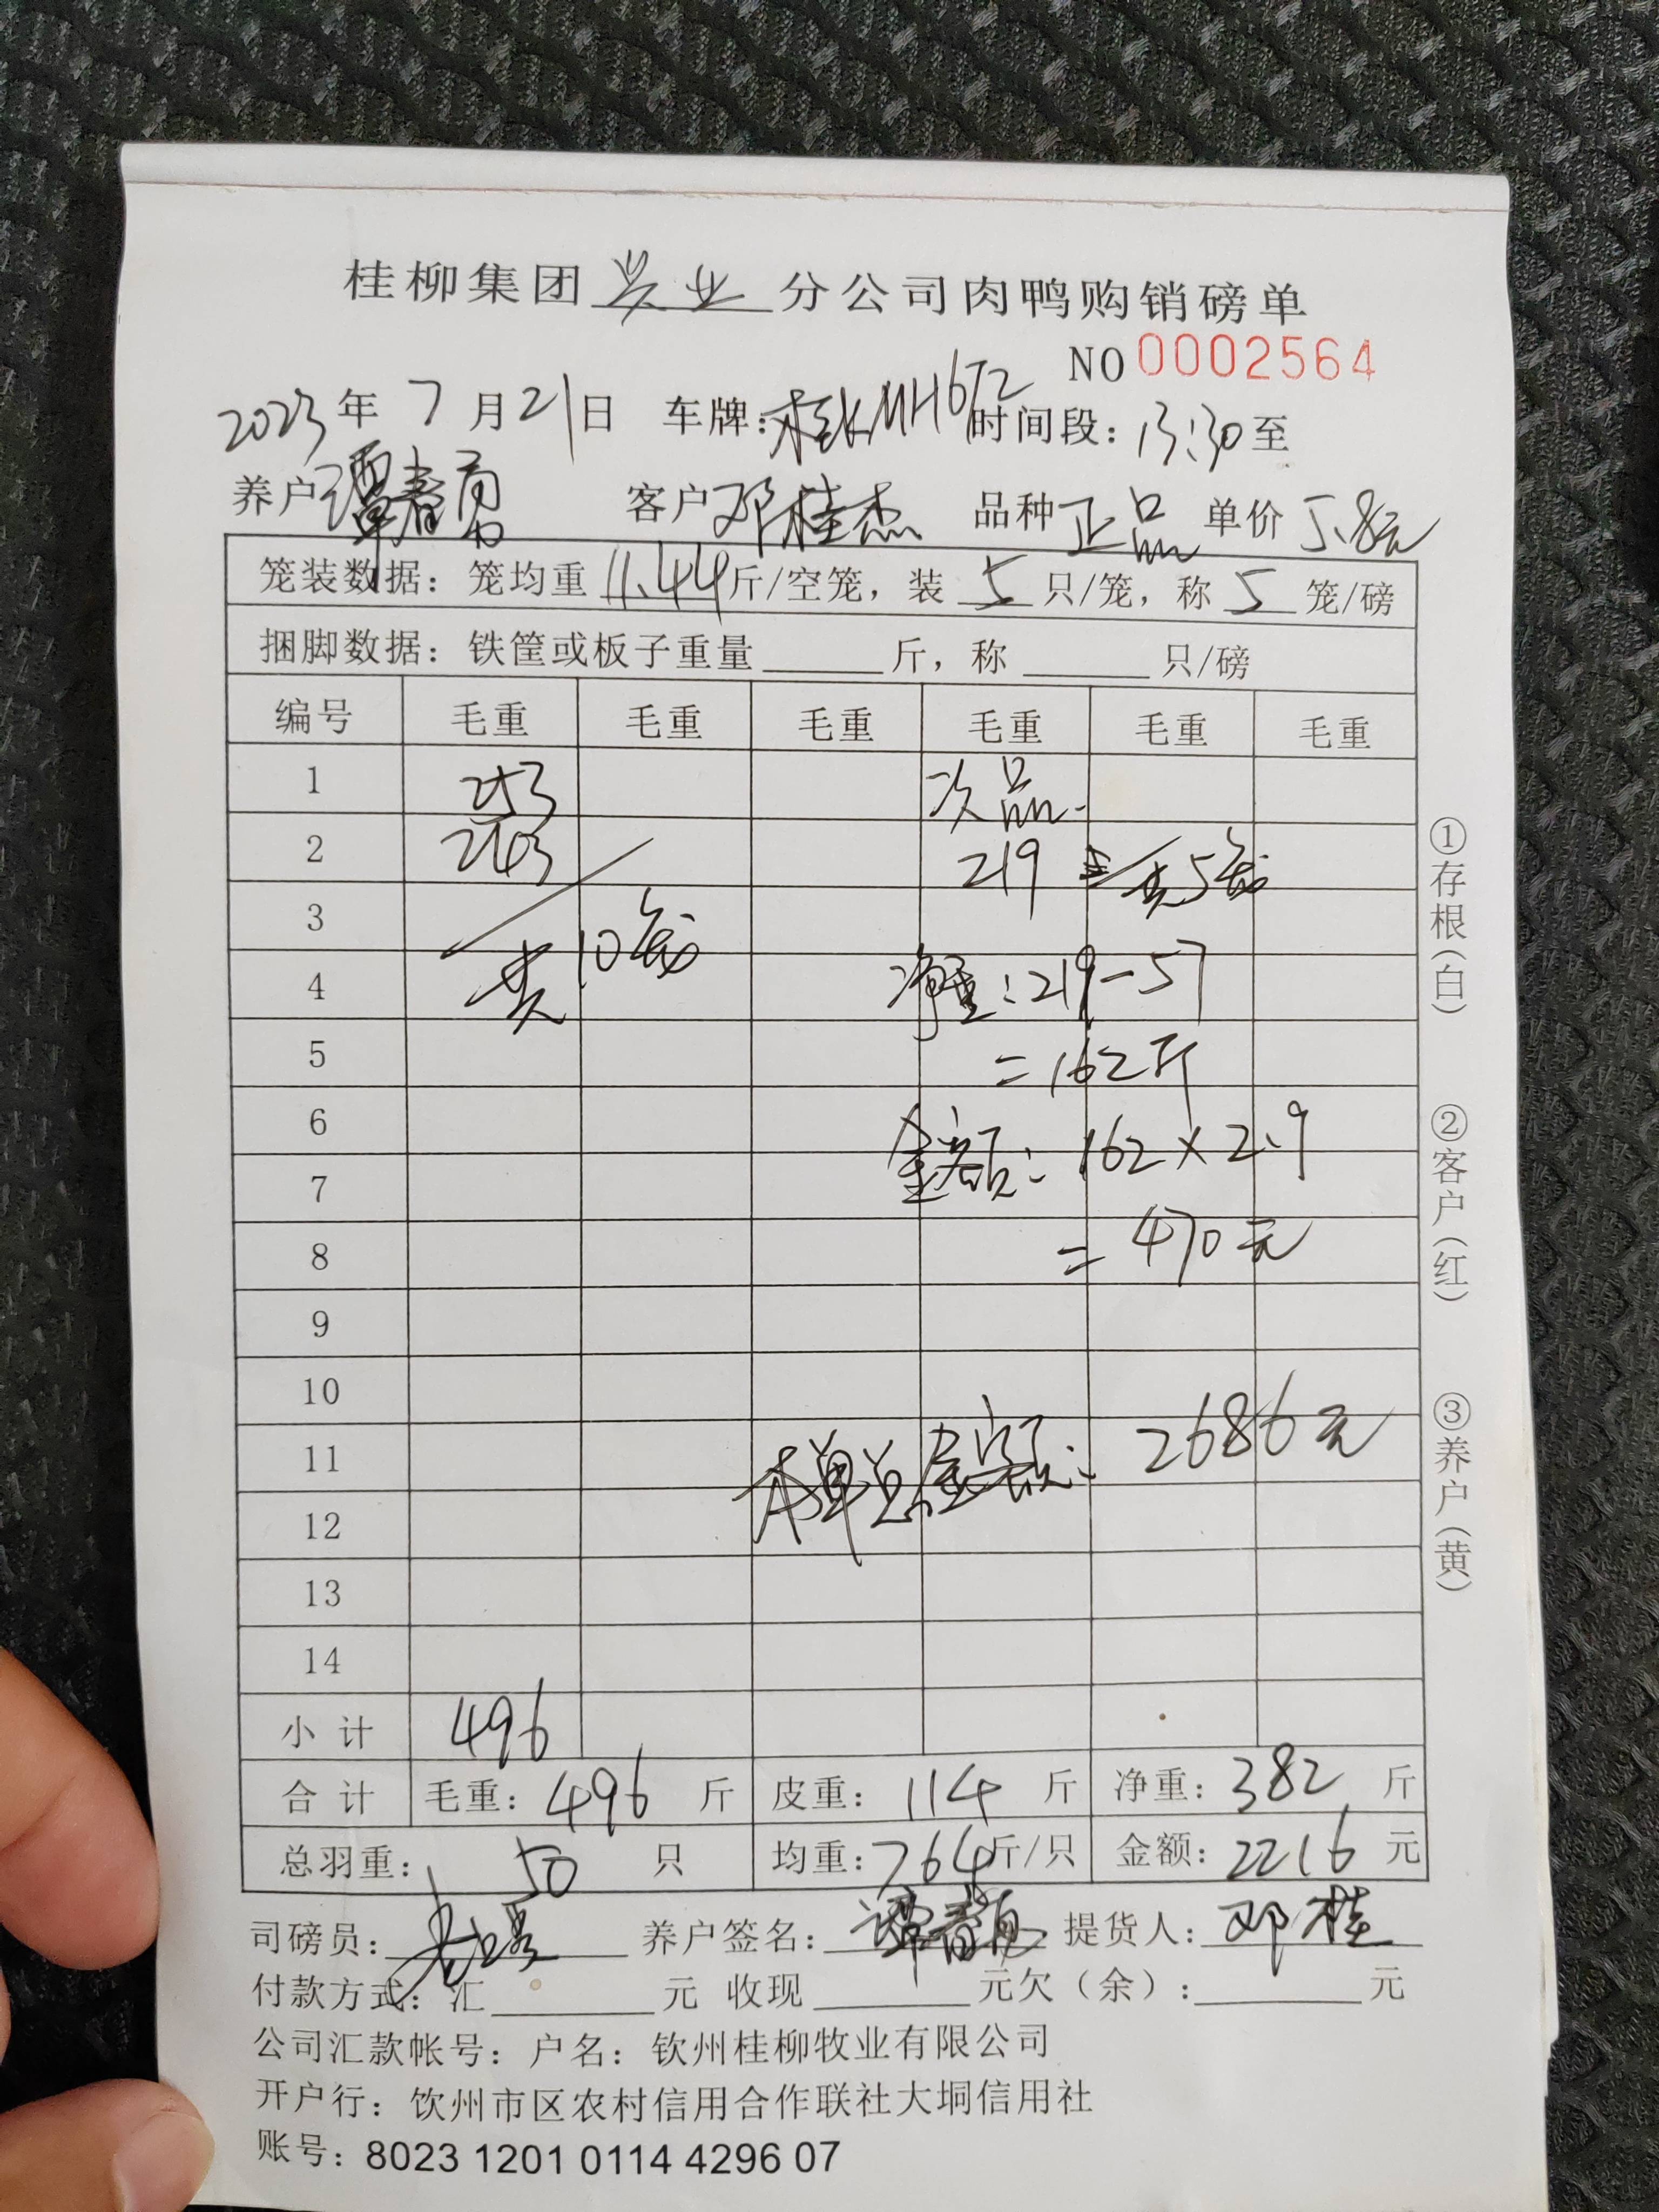 桂柳集团 兴业 分公司肉鸭购销磅单
NO 0002564
2023年 7 月 21 日 车牌: 桂KMH672 时间段: 13:30 至
养户 谭春勇 客户 邓桂杰 品种 正品 单价 5.8元
笼装数据: 笼均重 11.44 斤/空笼, 装 5 只/笼, 称 5 笼/磅
捆脚数据: 铁筐或板子重量 斤, 称 只/磅
编号 毛重 毛重 毛重 毛重 毛重 毛重
1 253 次品.
2 243 219 共5笼
3
4 共10笼 净重: 219-57
5 =162斤
6 金额: 162×2.9
7
8 = 470元
9
10
11 本单总金额: 2686元
12
13
14
小计 496
合计 毛重: 496 斤 皮重: 114 斤 净重: 382 斤
总羽重: 50 只 均重: 7.64 斤/只 金额: 2216 元
司磅员: 养户签名: 谭春勇 提货人: 邓桂
付款方式: 汇 元 收现 元欠(余): 元
公司汇款帐号: 户名: 钦州桂柳牧业有限公司
开户行: 饮州市区农村信用合作联社大垌信用社
账号: 8023 1201 0114 4296 07
①存根(白) ②客户(红) ③养户(黄)